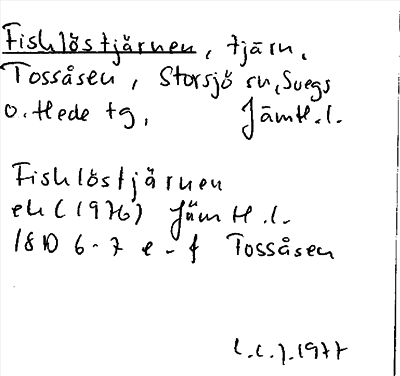 Fisklöstjärnen, tjärn,
Tossåsen, Storsjö sn, Svegs
o. Hede tg, Jämtl.l.
Fisklöstjärnen
ek (1976) Jämtl.l.
18D 6-7 e-f Tossåsen
L.L.J. 1977